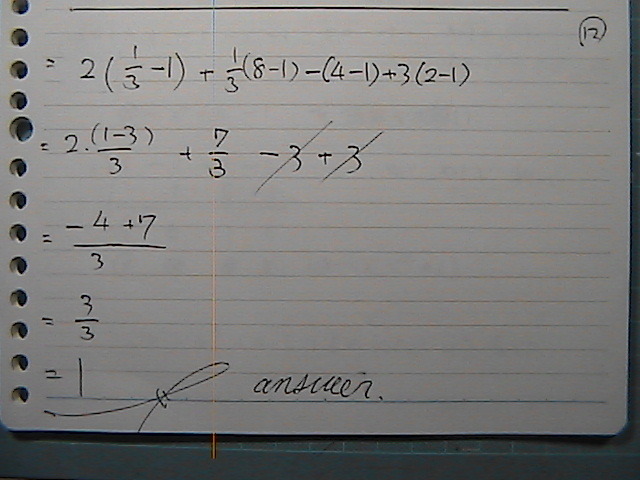 12
= 2 ( 1/3 - 1 ) + 1/3 (8-1) - (4-1) + 3 (2-1)
= 2 · (1-3)/3 + 7/3 - 3 + 3
= (-4 + 7)/3
= 3/3
= 1 answer.